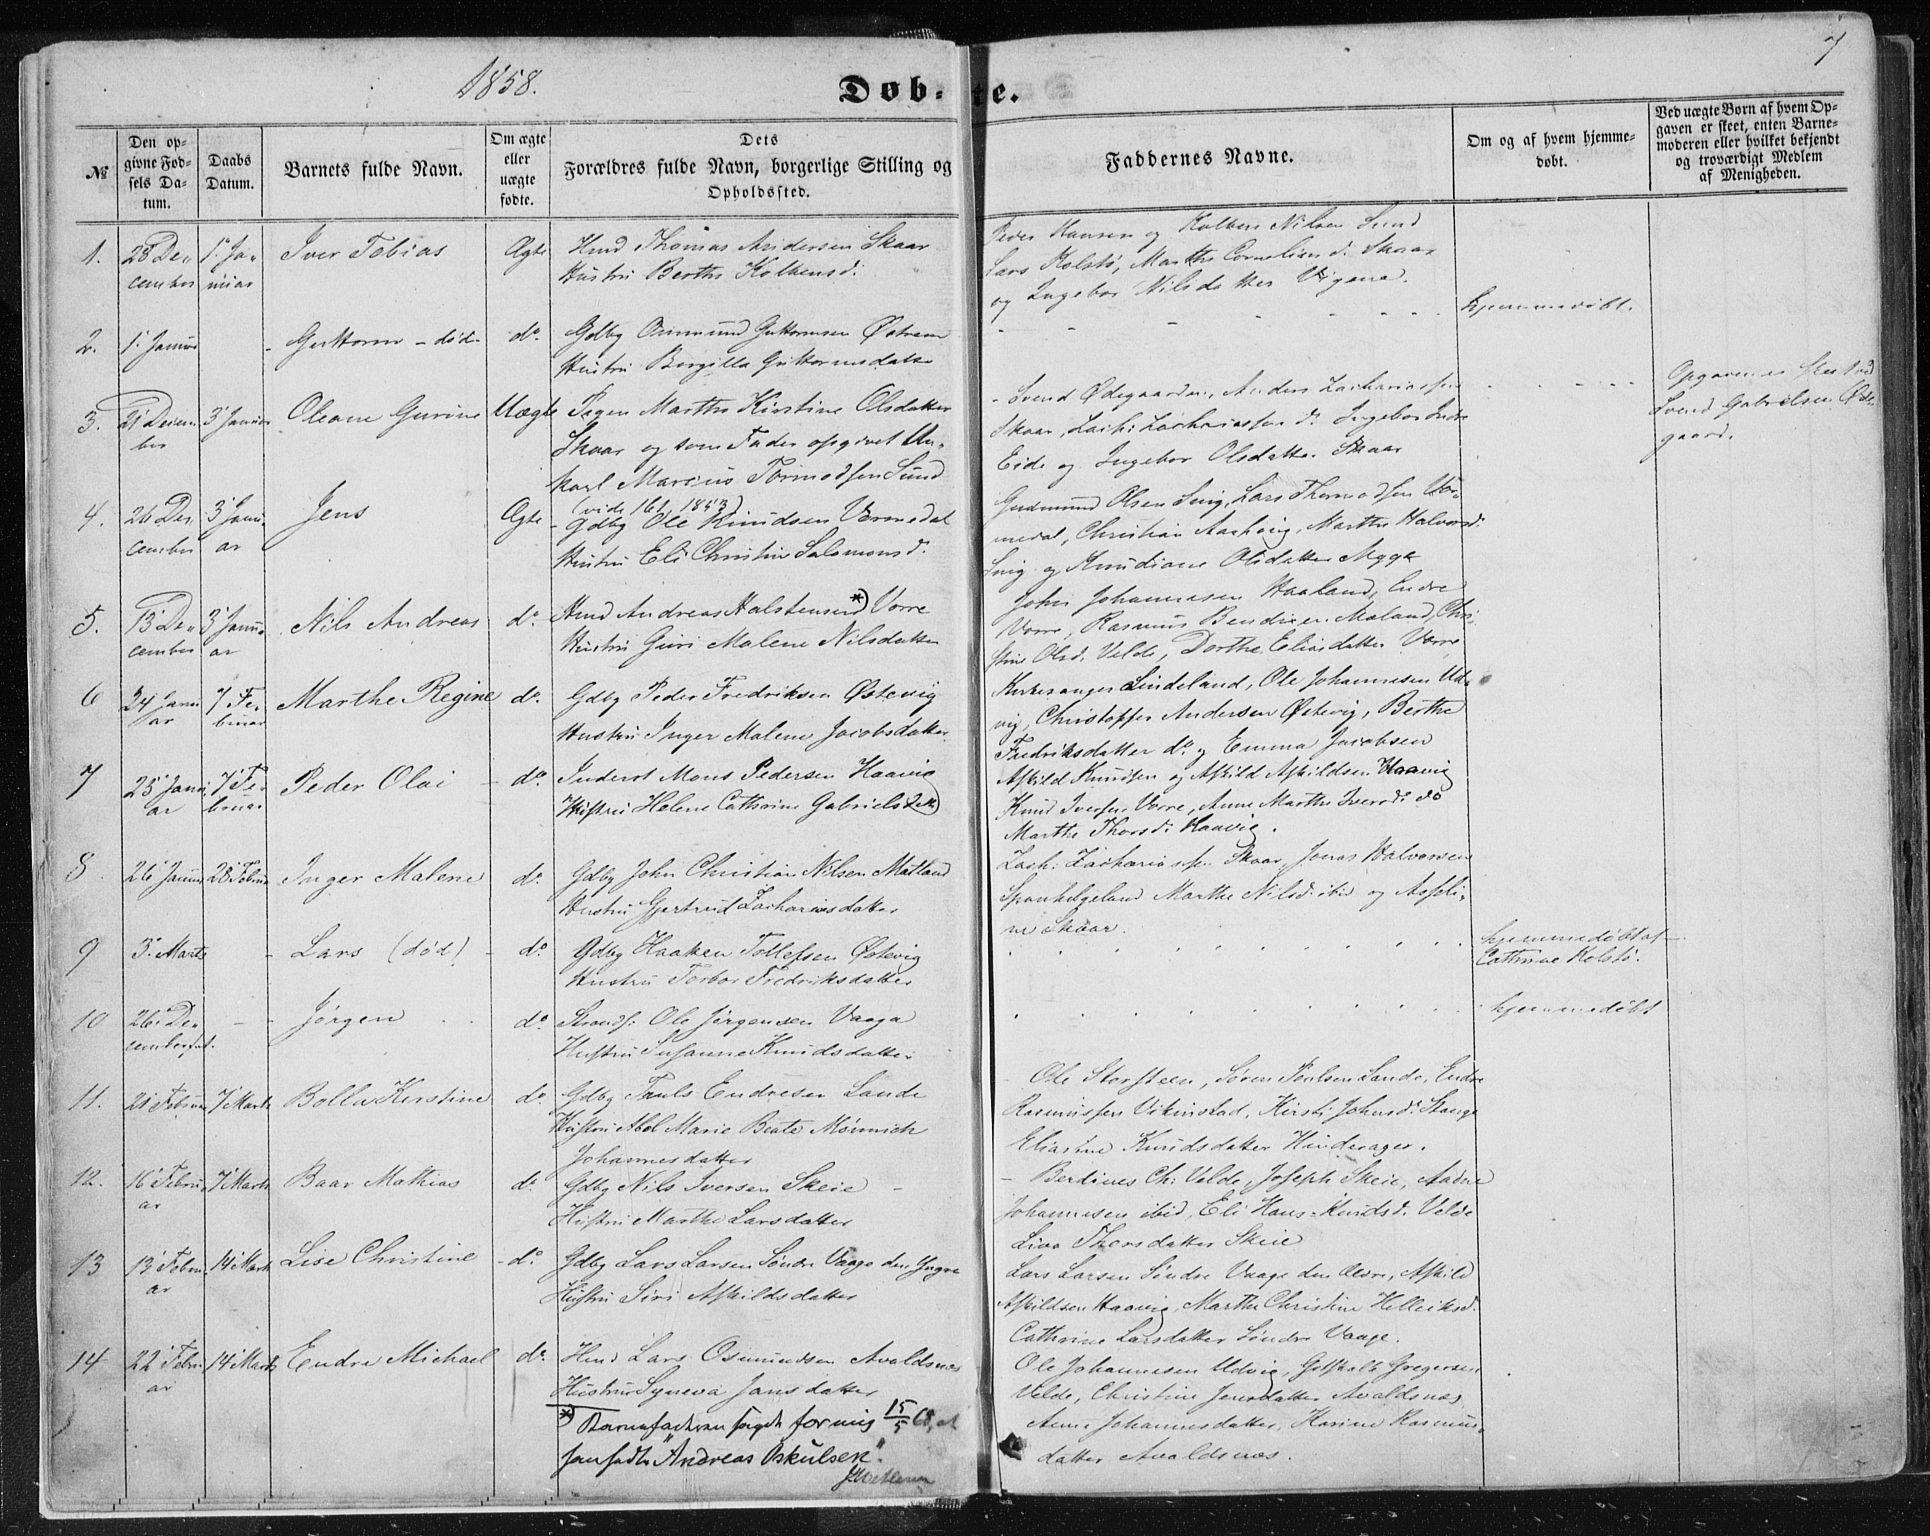 1858.
7
Døb-
te.
№
Den op-
givne Fød-
sels Da-
tum.
Daabs
Datum.
Barnets fulde Navn.
Om ægte
eller
uægte
fødte.
Dets
Forældres fulde Navn, borgerlige Stilling og
Opholdssted.
Faddernes Navne.
Om og af hvem hjemme-
døbt.
Ved uægte Børn af hvem Op-
gaven er skeet, enten Barne-
moderen eller hvilket bekjendt
og troværdigt Medlem
af Menigheden.
1.
28 De-
cember
1' Ja-
nuar
Iver Tobias
Ægte
Hmd Thomas Andersen Skaar
Hustru Berthe Kolbensd:
Peder Hansen og Kolben Nilsen Sund
Lars Kolstø, Marthe Corneliusd: Skaar
og Ingebor Nilsdatter
2.
1' Januar
Guttorm - død
do
Gdbg Osmund Guttormsen Østrem
Hustru Borgilla Guttormsdatter
hjemmedøbt.
3.
21 Decem-
ber
3' Januar
Oleane Gurine
Uægte
Pigen Marthe Kirstine Olsdatter
Skaar og som Fader opgivet Un-
karl Marcus Tormodsen Sund
(vide 161, 1853)
Svend Ødegaarden, Anders Zachariassen
Skaar,
Eide og Ingebor Olsdatter Skaar
Opgaven er skeet ved
Svend Gabrielsen Øde-
gaard.
4.
26 De-
cember
3' Janu-
ar
Jens
Ægte
Gdbg Ole Knudsen Vormedal
Hustru Eli Christine Salomonsd.
Gudmund Olsen Snig, Lars Thormodsen Vor-
medal, Christian Aarhvig, Marthe Halvorsd.
Snig og Knudiane Olsdatter Nygg
5.
13 De-
cember
3' Janu-
ar
Nils Andreas
do
Hmd Andreas Halstensen *) Vorre
Hustru Guri Malene Nilsdatter
John Johannesen Haaland, Endre
Vorre, Rasmus Bendixen Moland, Chri-
stine Olsd. Velde, Dorthe Eliasdatter Vorre
6
24 Janu-
ar
7' Fe-
bruar
Marthe Regine
do
Gdbg Peder Fredriksen Østevig
Hustru Inger Malene Jacobsdatter
Lindeland, Ole Johannesen Ud-
vig, Christopher Andersen Østevig, Berthe
Fredriksdatter do og Emma Jacobsen
7
25' Janu-
ar
7' Fe-
bruar
Peder Olai
do
Inderst Mons Pedersen Haavig
Hustru Helene Cathrine Gabrielsdatter
Askild Knudsen og Askild Askildsen Haavig
Knud Iversen Vorre, Anne Marthe Iversd: do
Marthe Thorsd: Haavig.
8
26' Januar
28' Februar
Inger Malene
do
Gdbg John Christian Nilsen Matland
Hustru Gjertrud Zachariasdatter
Zach: Zachariassen Skaar, Jonas Halvorsen
Spanhelgeland Marthe Nilsd: ibid og Asseli-
ne Skaar.
9
3' Marts
Lars (død)
do
Gdbg Haaken Tollefsen Østevig
Hustru Torbor Fredriksdatter
hjemmedøbt af
Cathrine Kolstø.
10
26' De-
cember
Jørgen
do
Strands: Ole Jørgensen Vaaga
Hustru Susanne Knudsdatter
hjemmedøbt
11.
21' Februar
7' Marts
Bolla Kirstine
do
Gdbg Pauls Endresen Lande
Hustru Abel Marie Beate Mönnich
Johannesdatter
Ole Storsteen, Søren Poulsen Lande, Endre
Rasmussen Vikinstad, Kirsti Johnsd: Stange
Eliasine Knudsdatter Hinderager.
12.
16' Febru-
ar
7' Marts
Baar Mathias
do
Gdbg Nils Iversen Skeie
Hustru Marthe Larsdatter
Berdines Ch: Velde, Joseph Skeie, Aadne
Johannesen ibid, Eli Hans Knudsd. Velde
Liva Thorsdatter Skeie
13
13' Febru-
ar
14' Marts
Lise Christine
do
Gdbg Lars Larsen Søndre Vaage den Yngre
Hustru Siri Askildsdatter
Lars Larsen Søndre Vaage den Ældre, Askild
Askildsen Haavig, Marthe Christine Helleiksd:
Cathrine Larsdatter Søndre Vaage.
14
22' Febru-
ar
14' Marts
Endre Michael
do
Hmd Lars Osmundsen Avaldsnes
Hustru Syneva Jansdatter
Ole Johannesen Udvig, Gotskalk Gregersen
Velde, Christine Jensdatter Avaldsnes
Anne Johannesdatter, Karine Rasmus-
datter Avaldsnes.
*) Barnefaderen sagde for mig 15/5 68, at
han hadde "Andreas Oskulsen".